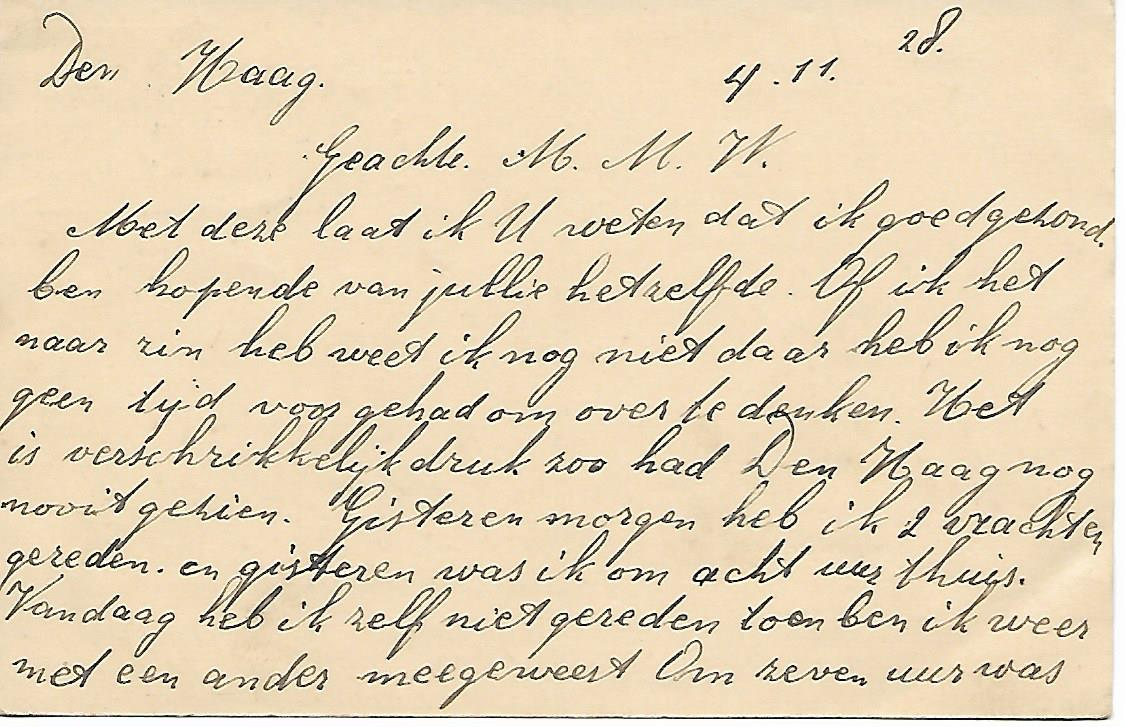 Den Haag. 4.11.28.
Geachte. M. M. W.
Met deze laat ik U weten dat ik goed gezond.
ben hopende van jullie hetzelfde. Of ik het
naar zin heb weet ik nog niet daar heb ik nog
geen tijd voor gehad om over te denken. Het
is verschrikkelijk druk zoo had Den Haag nog
nooit gezien. Gisteren morgen heb ik 2 vrachten
gereden. en gisteren was ik om acht uur thuis.
Vandaag heb ik zelf niet gereden toen ben ik weer
met een ander meegeweest Om zeven uur was